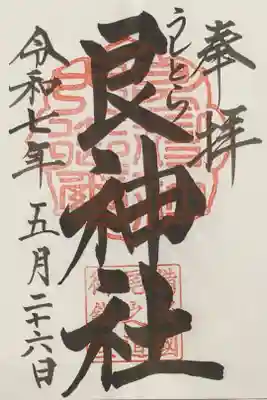 奉拝
うしとら
艮神社
令和七年
五月二十六日